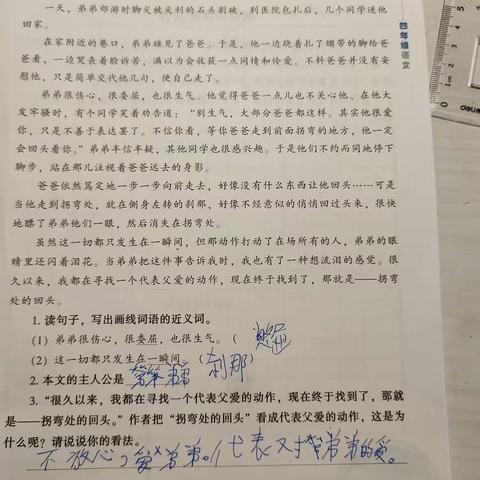 一天，弟弟郊游时脚尖被尖利的石头割破，到医院包扎后，几个同学送他
回家。
在家附近的巷口，弟弟碰见了爸爸。于是，他一边跷着扎了绷带的脚给爸
爸看，一边哭丧着脸诉苦，满以为会收获一点同情和怜爱。不料爸爸并没有安
慰他，只是简单交代他几句，便自己走了。
弟弟很伤心，很委屈，也很生气。他觉得爸爸一点儿也不关心他。在他大
发牢骚时，有个同学笑着劝告道：“别生气，大部分爸爸都这样。其实他很爱
你，只是不善于表达罢了。不信你看，等你爸爸走到前面拐弯的地方，他一定
会回头看你。”弟弟半信半疑，其他同学也很感兴趣。于是他们不约而同地停下
脚步，站在那儿注视着爸爸远去的身影。
爸爸依然笃定地一步一步向前走去，好像没有什么东西让他回头……可是
当他走到拐弯处，就在侧身左转的刹那，好像不经意似的悄悄回过头来，很快
地瞟了弟弟他们一眼，然后消失在拐弯处。
虽然这一切都只发生在一瞬间，但那动作打动了在场所有的人，弟弟的眼
睛里还闪着泪花。当弟弟把这件事告诉我时，我也有了一种想流泪的感觉。很
久以来，我都在寻找一个代表父爱的动作，现在终于找到了，那就是——拐弯
处的回头。
1. 读句子，写出画线词语的近义词。
(1) 弟弟很伤心，很委屈，也很生气。（
(2) 这一切都只发生在一瞬间。（刹那）
2. 本文的主人公是 弟弟
3. “很久以来，我都在寻找一个代表父爱的动作，现在终于找到了，那就
是——拐弯处的回头。”作者把“拐弯处的回头”看成代表父爱的动作，这是为
什么呢？请说说你的看法。
不放心 爱弟弟。代表对弟弟的爱。
四年级语文
deli